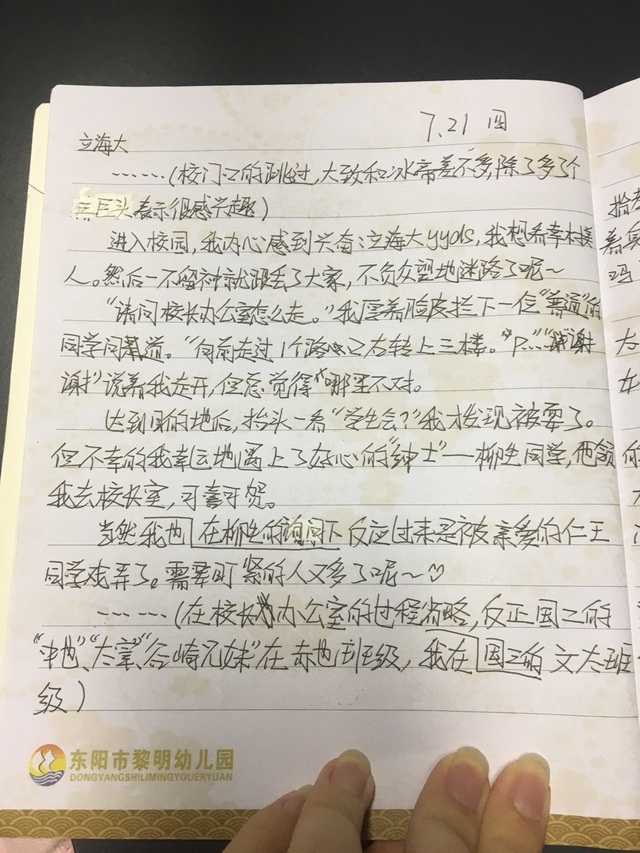 7.21 四
立海大
……(校门口的跳过,大致和冰帝差不多,除了多了个
三巨头表示很感兴趣)
进入校园,我内心感到兴奋:立海大yyds,我想看幸村美
人。然后一不留神就跟丢了大家,不负众望地迷路了呢~
“请问校长办公室怎么走。”我厚着脸皮拦下一位“普通”的
同学问道。“向前走过1个路口左转上三楼。”“P……谢谢
谢”说着我走开,但总觉得哪里不对。
达到目的地后,抬头一看“学生会?”我才发现被耍了。
但不幸的我幸运地遇上了好心的“绅士”——柳生同学,他领
我去校长室,可喜可贺。
当然我也在柳生的询问下反应过来是被亲爱的仁王
同学戏弄了。需要盯紧的人又多了呢~♡
……(在校长办公室的过程省略,反正国二的
“中也”、“太宰”、“谷崎兄妹”在赤也班级,我在国三的文太班
级)
东阳市黎明幼儿园
DONGYANGSHILIMINGYOUERYUAN